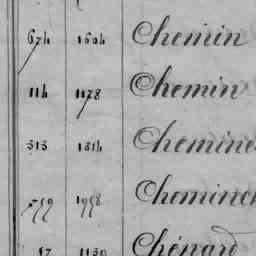 674 1604 Chemin
114 1178 Chemin
313 1314 Chemine
759 1958 Chemine
17 1130 Chénard